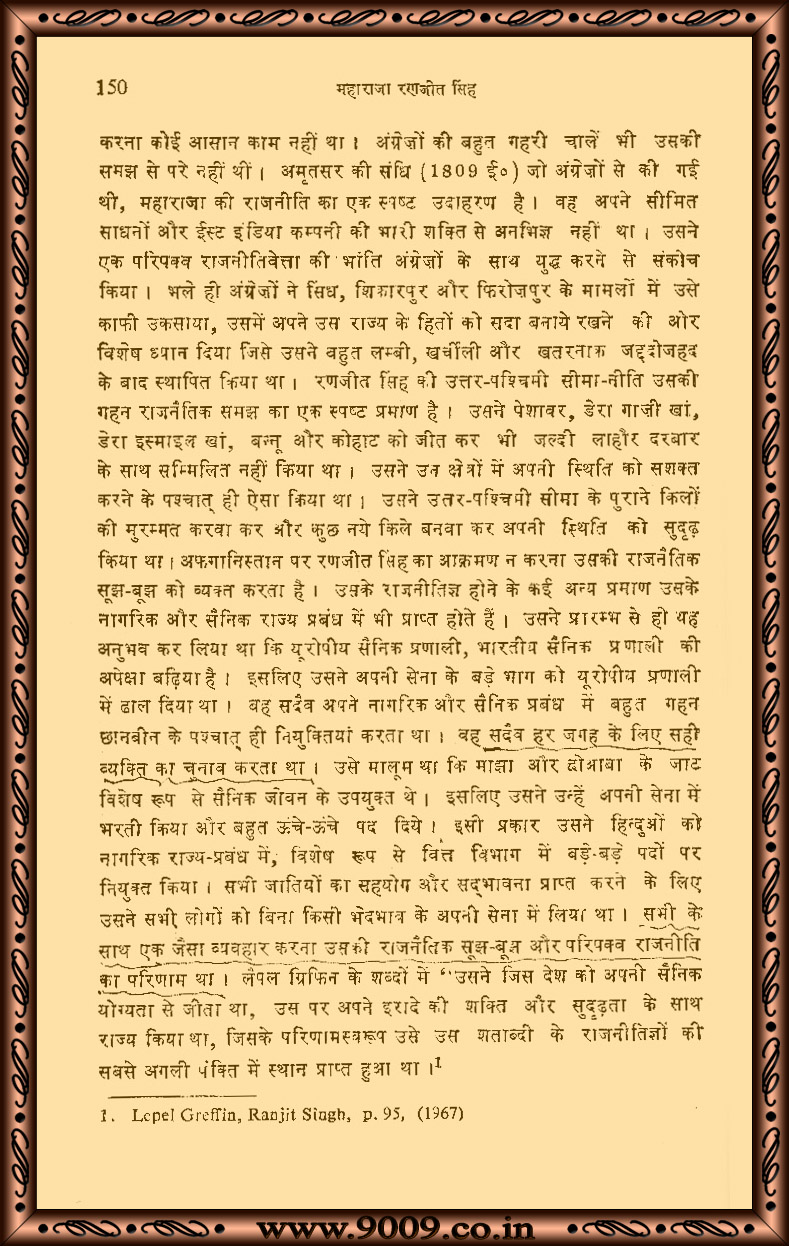 150 महाराजा रणजीत सिंह
करना कोई आसान काम नहीं था। अंग्रेज़ों की बहुत गहरी चालें भी उसकी
समझ से परे नहीं थीं। अमृतसर की संधि (1809 ई०) जो अंग्रेज़ों से की गई
थी, महाराजा की राजनीति का एक स्पष्ट उदाहरण है। वह अपने सीमित
साधनों और ईस्ट इंडिया कम्पनी की भारी शक्ति से अनभिज्ञ नहीं था। उसने
एक परिपक्व राजनीतिवेत्ता की भांति अंग्रेज़ों के साथ युद्ध करने से संकोच
किया। भले ही अंग्रेज़ों ने सिंध, शिकारपुर और फिरोज़पुर के मामलों में उसे
काफी उकसाया, उसमें अपने उस राज्य के हितों को सदा बनाये रखने की ओर
विशेष ध्यान दिया जिसे उसने बहुत लम्बी, खर्चीली और खतरनाक जद्दोजहद
के बाद स्थापित किया था। रणजीत सिंह की उत्तर-पश्चिमी सीमा-नीति उसकी
गहन राजनैतिक समझ का एक स्पष्ट प्रमाण है। उसने पेशावर, डेरा गाज़ी खां,
डेरा इस्माइल खां, बन्नू और कोहाट को जीत कर भी जल्दी लाहौर दरबार
के साथ सम्मिलित नहीं किया था। उसने उन क्षेत्रों में अपनी स्थिति को सशक्त
करने के पश्चात् ही ऐसा किया था। उसने उत्तर-पश्चिमी सीमा के पुराने किलों
की मुरम्मत करवा कर और कुछ नये किले बनवा कर अपनी स्थिति को सुदृढ़
किया था। अफगानिस्तान पर रणजीत सिंह का आक्रमण न करना उसकी राजनैतिक
सूझ-बूझ को व्यक्त करता है। उसके राजनीतिज्ञ होने के कई अन्य प्रमाण उसके
नागरिक और सैनिक राज्य प्रबंध में भी प्राप्त होते हैं। उसने प्रारम्भ से ही यह
अनुभव कर लिया था कि यूरोपीय सैनिक प्रणाली, भारतीय सैनिक प्रणाली की
अपेक्षा बढ़िया है। इसलिए उसने अपनी सेना के बड़े भाग को यूरोपीय प्रणाली
में ढाल दिया था। वह सदैव अपने नागरिक और सैनिक प्रबंध में बहुत गहन
छानबीन के पश्चात् ही नियुक्तियां करता था। वह सदैव हर जगह के लिए सही
व्यक्ति का चुनाव करता था। उसे मालूम था कि माझा और दोआबा के जाट
विशेष रूप से सैनिक जीवन के उपयुक्त थे। इसलिए उसने उन्हें अपनी सेना में
भरती किया और बहुत ऊंचे-ऊंचे पद दिये। इसी प्रकार उसने हिन्दुओं को
नागरिक राज्य-प्रबंध में, विशेष रूप से वित्त विभाग में बड़े-बड़े पदों पर
नियुक्त किया। सभी जातियों का सहयोग और सद्भावना प्राप्त करने के लिए
उसने सभी लोगों को बिना किसी भेदभाव के अपनी सेना में लिया था। सभी के
साथ एक जैसा व्यवहार करना उसकी राजनैतिक सूझ-बूझ और परिपक्व राजनीति
का परिणाम था। लैपल ग्रिफिन के शब्दों में "उसने जिस देश को अपनी सैनिक
योग्यता से जीता था, उस पर अपने इरादे की शक्ति और सुदृढ़ता के साथ
राज्य किया था, जिसके परिणामस्वरूप उसे उस शताब्दी के राजनीतिज्ञों की
सबसे अगली पंक्ति में स्थान प्राप्त हुआ था।¹
1. Lepel Greffin, Ranjit Singh, p. 95, (1967)
www.9009.co.in